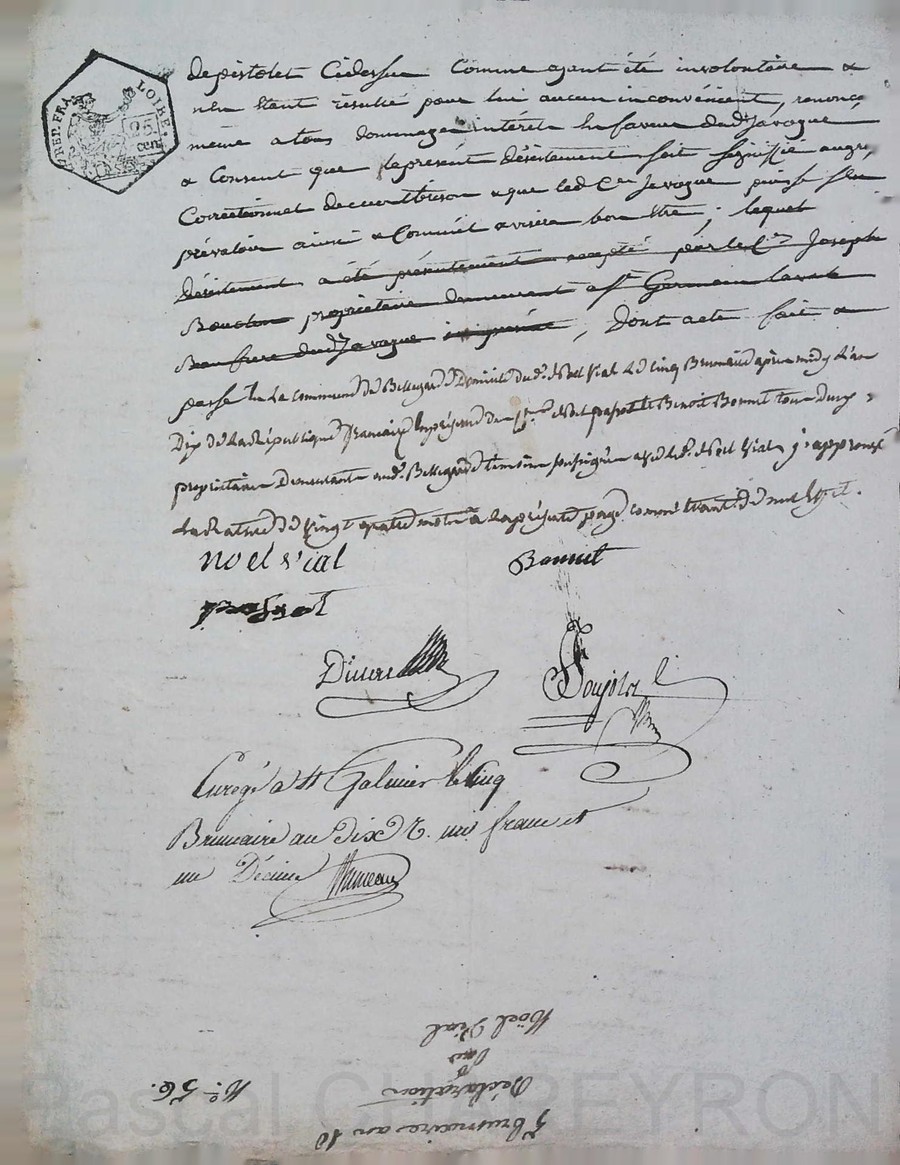 REP. FRA. LOIRE. 25 cen
de pistolet Cidessus Comme ayant été involontaire &
n'en étant résulté pour lui aucun inconvénient, renonce
même a tous dommages intérêts En faveur dud. Javogue
& Consent que le présent désistement soit signifié au gref
Correctionnel de cet & que led. Cen. Javogue puisse s'en
prévaloir ainsi & Comme il avisera bon être; lequel
désistement a été présentement accepté par le Cen. Joseph
Bouchon propriétaire demeurant a St. Germain laval
Beaufrere dud. Javogue , Dont acte fait &
passé En la commune de Bellegard Domicile dud. Noel Vial Le Cinq Brumaire après midy L'an
Dix de La République française En présence du Cen. et de Benoit Bonnet tous deux
propriétaires Demeurants aud. Bellegard témoins soussignés avec led. Noel Vial
La Rature de Vingt quatre mots a la présente page comme étant de nul effet.
noel vial Bonnet
Enregé a St Galmier le Cinq
Brumaire an Dix R. un franc et
un Décime
Noël Vial
par
Déclaration
N.o 56.
5 brumaire an 10
Pascal CHAREYRON